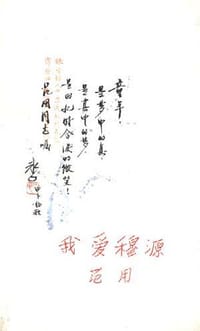 童年！
是梦中的真
是真中的梦
是回忆时含泪的微笑！
范用同志嘱
冰心
我爱穆源
范用